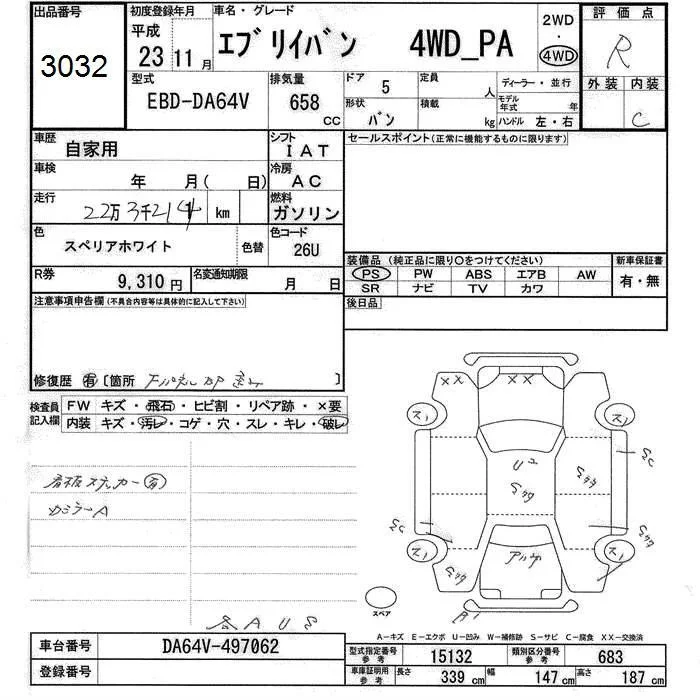 出品番号
3032
初度登録年月
平成
23 11 月
車名・グレード
エブリイバン 4WD_PA
2WD
・
4WD
評価点
R
外装 内装
C
型式
EBD-DA64V
排気量
658 cc
ドア 5
形状 バン
定員 人
積載 kg
ディーラー・並行
モデル年式 年
ハンドル 左・右
車歴
自家用
シフト
IAT
車検
年 月( 日)
冷房
AC
走行
22万3千214 km
燃料
ガソリン
色
スペリアホワイト
色替
色コード
26U
R券
9,310 円
名変通知期限
月 日
セールスポイント(正常に機能するものに限ります)
装備品(純正品に限り○をつけてください)
PS PW ABS エアB AW
SR ナビ TV カワ
新車保証書
有・無
後日品
注意事項申告欄(不具合内容等は具体的に記入して下さい)
修復歴 有 [箇所 ]
検査員記入欄
FW キズ・飛石・ヒビ割・リペア跡・×要
内装 キズ・汚レ・コゲ・穴・スレ・キレ・破レ
看板ステッカー有
カミラーA
各AUS
XX
ス1 ス1
U2
SC
SC
ス1 ス1
スペア
A-キズ E-エクボ U-凹み W-補修跡 S-サビ C-腐食 XX-交換済
車台番号 DA64V-497062
登録番号
型式指定番号 参考 15132
類別区分番号 参考 683
車庫証明用 参考 長さ 339 cm 幅 147 cm 高さ 187 cm